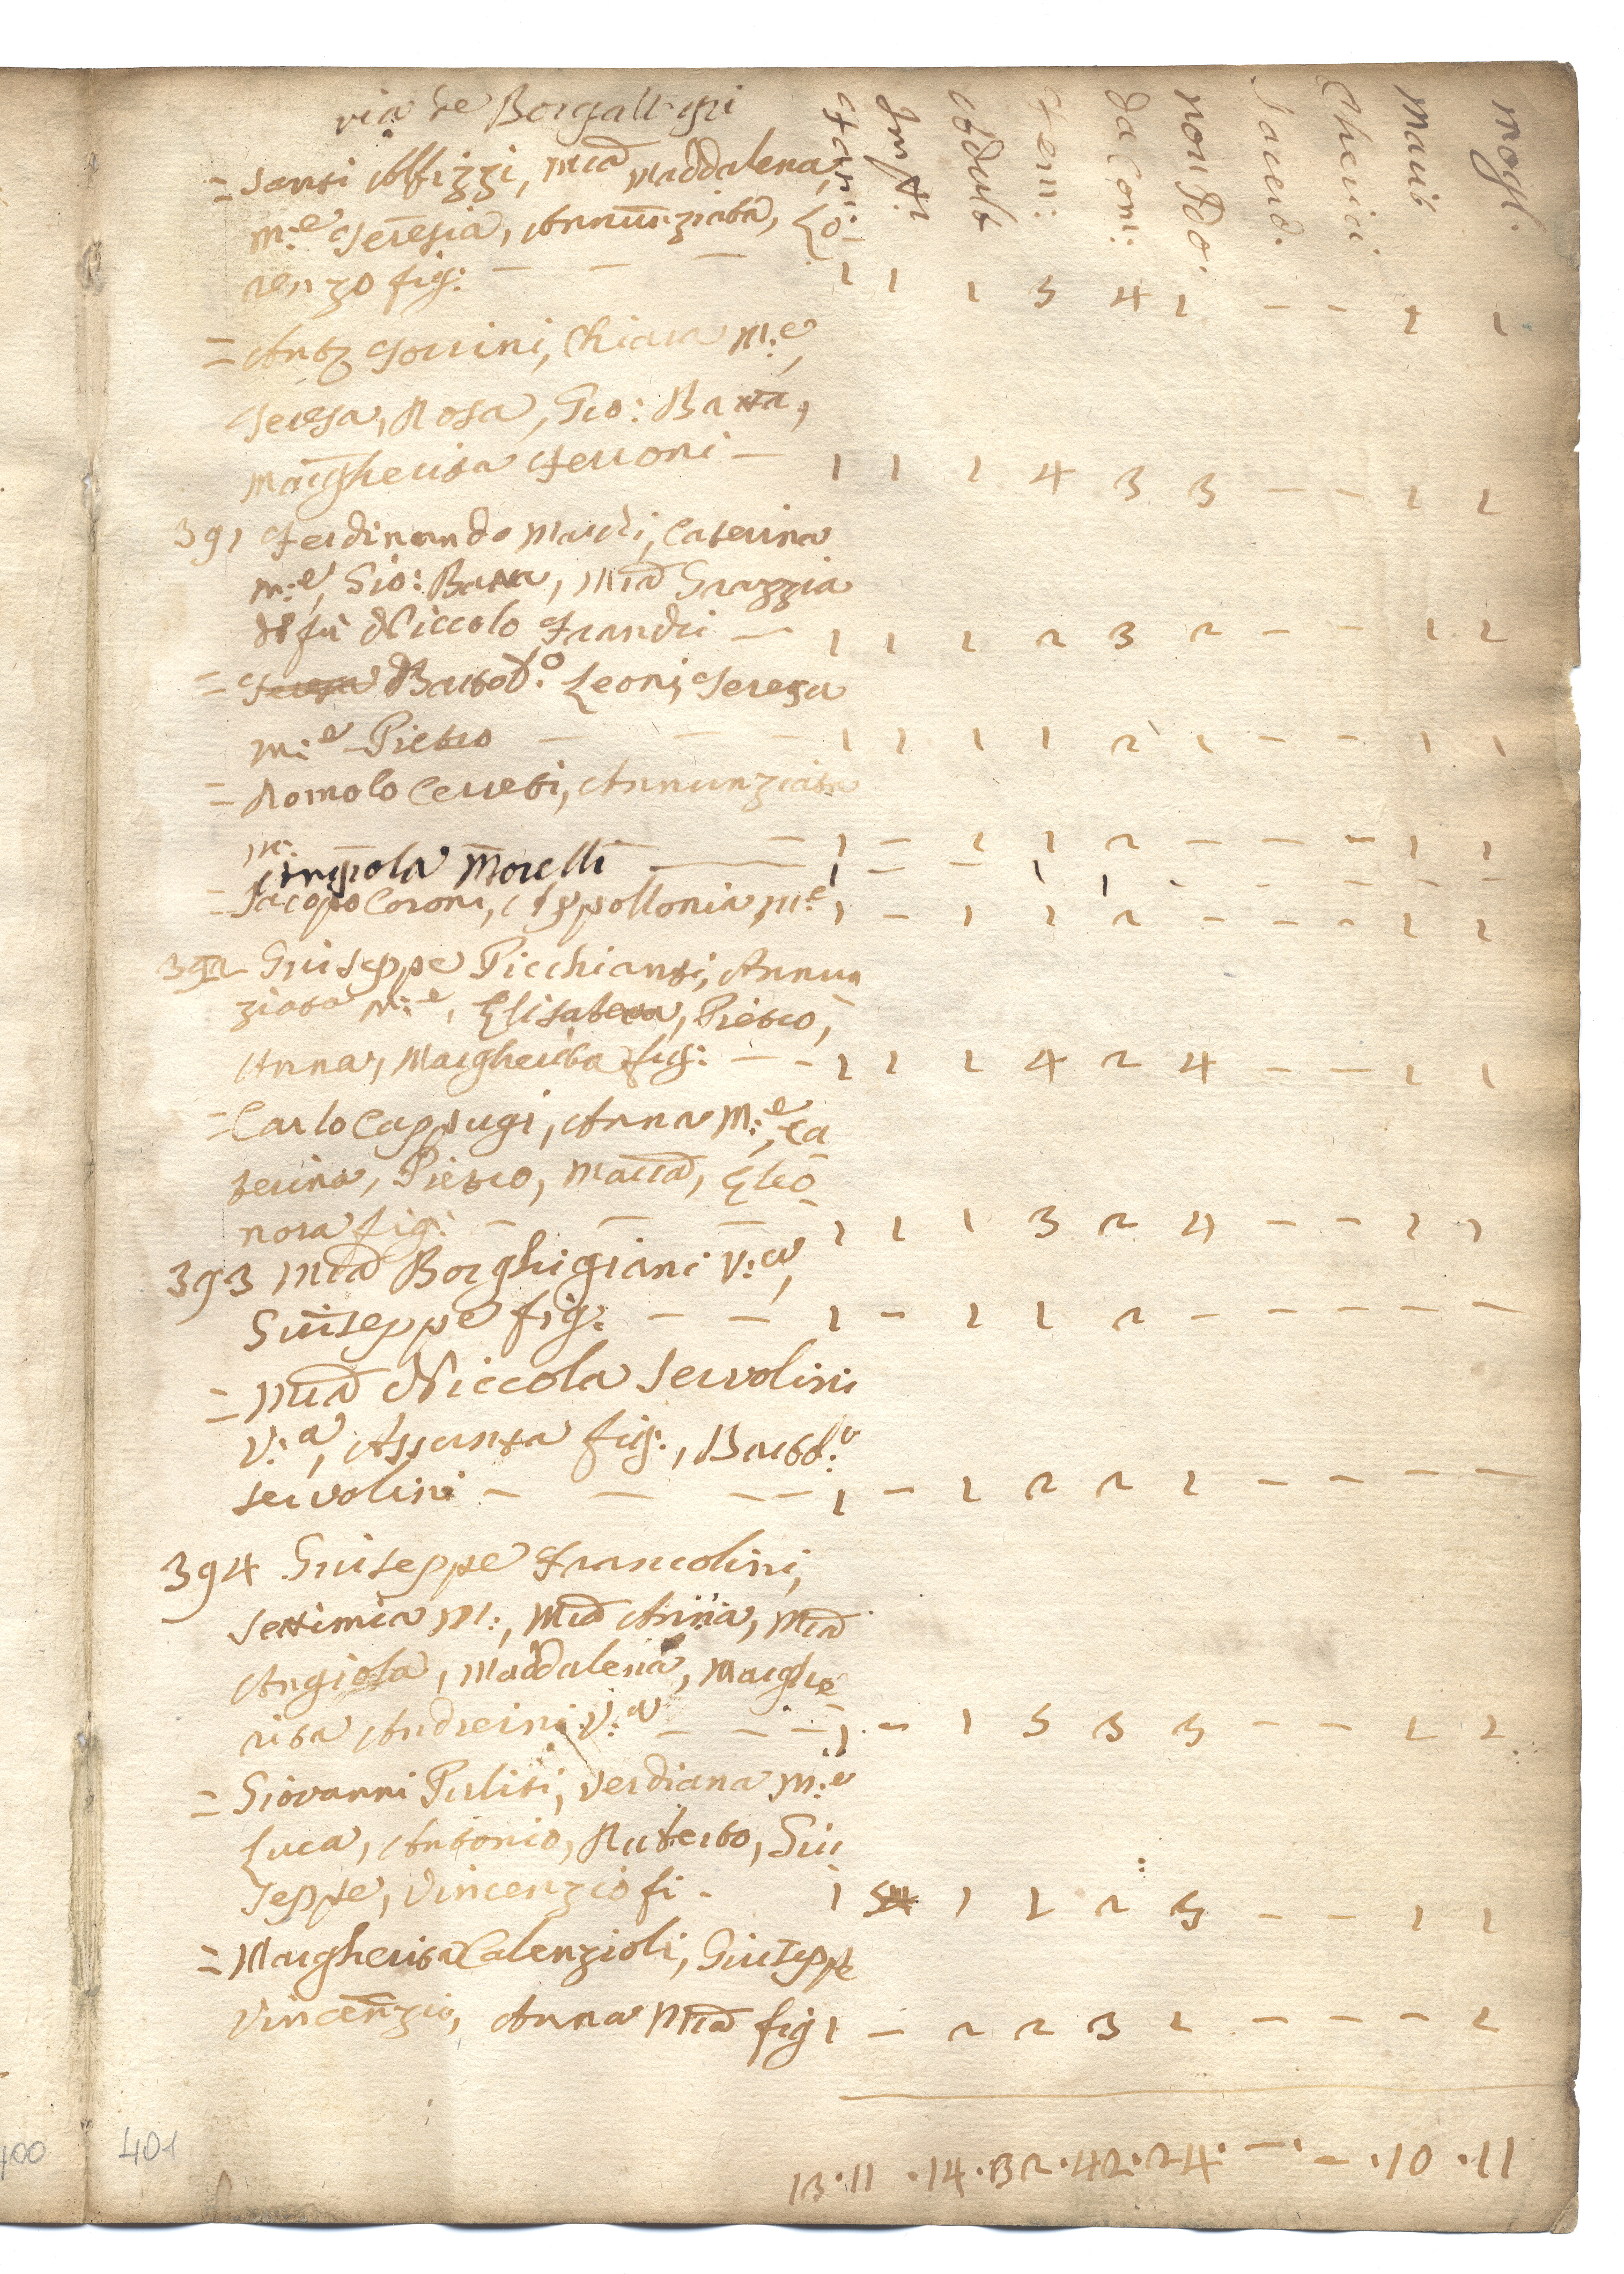 via de Borgallegri
Fami: Inf: Adult Fem: da Com: non Do. Sacerd. Cherici Marit Mogl.
= Santi Alfizzi, Mria Maddalena,
m:e Teresia, Annunziata, Lo:
renzo fig: — — — 1 1 1 5 4 1 — — 1 1
= Anto Torrini, Chiara M:e,
Teresa, Rosa, Gio: Batta,
Margherita Ferroni — 1 1 1 4 3 3 — — 1 1
391 Ferdinando Marchi, Caterina
m:e, Gio: Batta, Mria Grazzia
di fu Niccolo Franchi — 1 1 1 2 3 2 — — 1 1
= Bartod:o Leoni, Teresa
m:e Pietro — — — 1 1 1 1 2 1 — — 1 1
= Romolo Cerreti, Annunziata
m: — 1 — 1 1 2 — — — 1 1
Angiola Morelli — 1 — — 1 1 - - - - -
= Jacopo Coroni, Appollonia M:e 1 — 1 1 2 — — — 1 1
392 Giuseppe Picchianti, Annun
ziata M:e, Elisabetta, Pietro,
Anna, Margherita fig: — — 1 1 1 4 2 4 — — 1 1
= Carlo Cappugi, Anna M:e, Ca
terina, Pietro, Maria, Eleo
nora fig: — — — 1 1 1 3 2 4 — — 1 1
393 Mria Borghigiani V:a,
Giuseppe fig: — — 1 — 1 1 2 — — — — —
= Mria Niccola Servolini
V:a, Assunta fig:, Bartod:o
Servolini — — — — 1 — 1 2 2 1 — — — —
394 Giuseppe Francolini,
Settimia M:, Mria Anna, Mria
Angiola, Maddalena, Marghe
rita Andreini V:a — — — 1 — 1 5 3 3 — — 1 1
= Giovanni Puliti, Verdiana M:e
Luca, Antonio, Ruberto, Giu
seppe, Vincenzio fi - 1 5 1 1 2 5 — — 1 1
= Margherita Calenzioli, Giuseppe
Vincenzio, Anna Mria fig 1 — 2 2 3 1 — — — 1
13 · 11 · 14 · 32 · 42 · 24 · — · — · 10 · 11
400 401